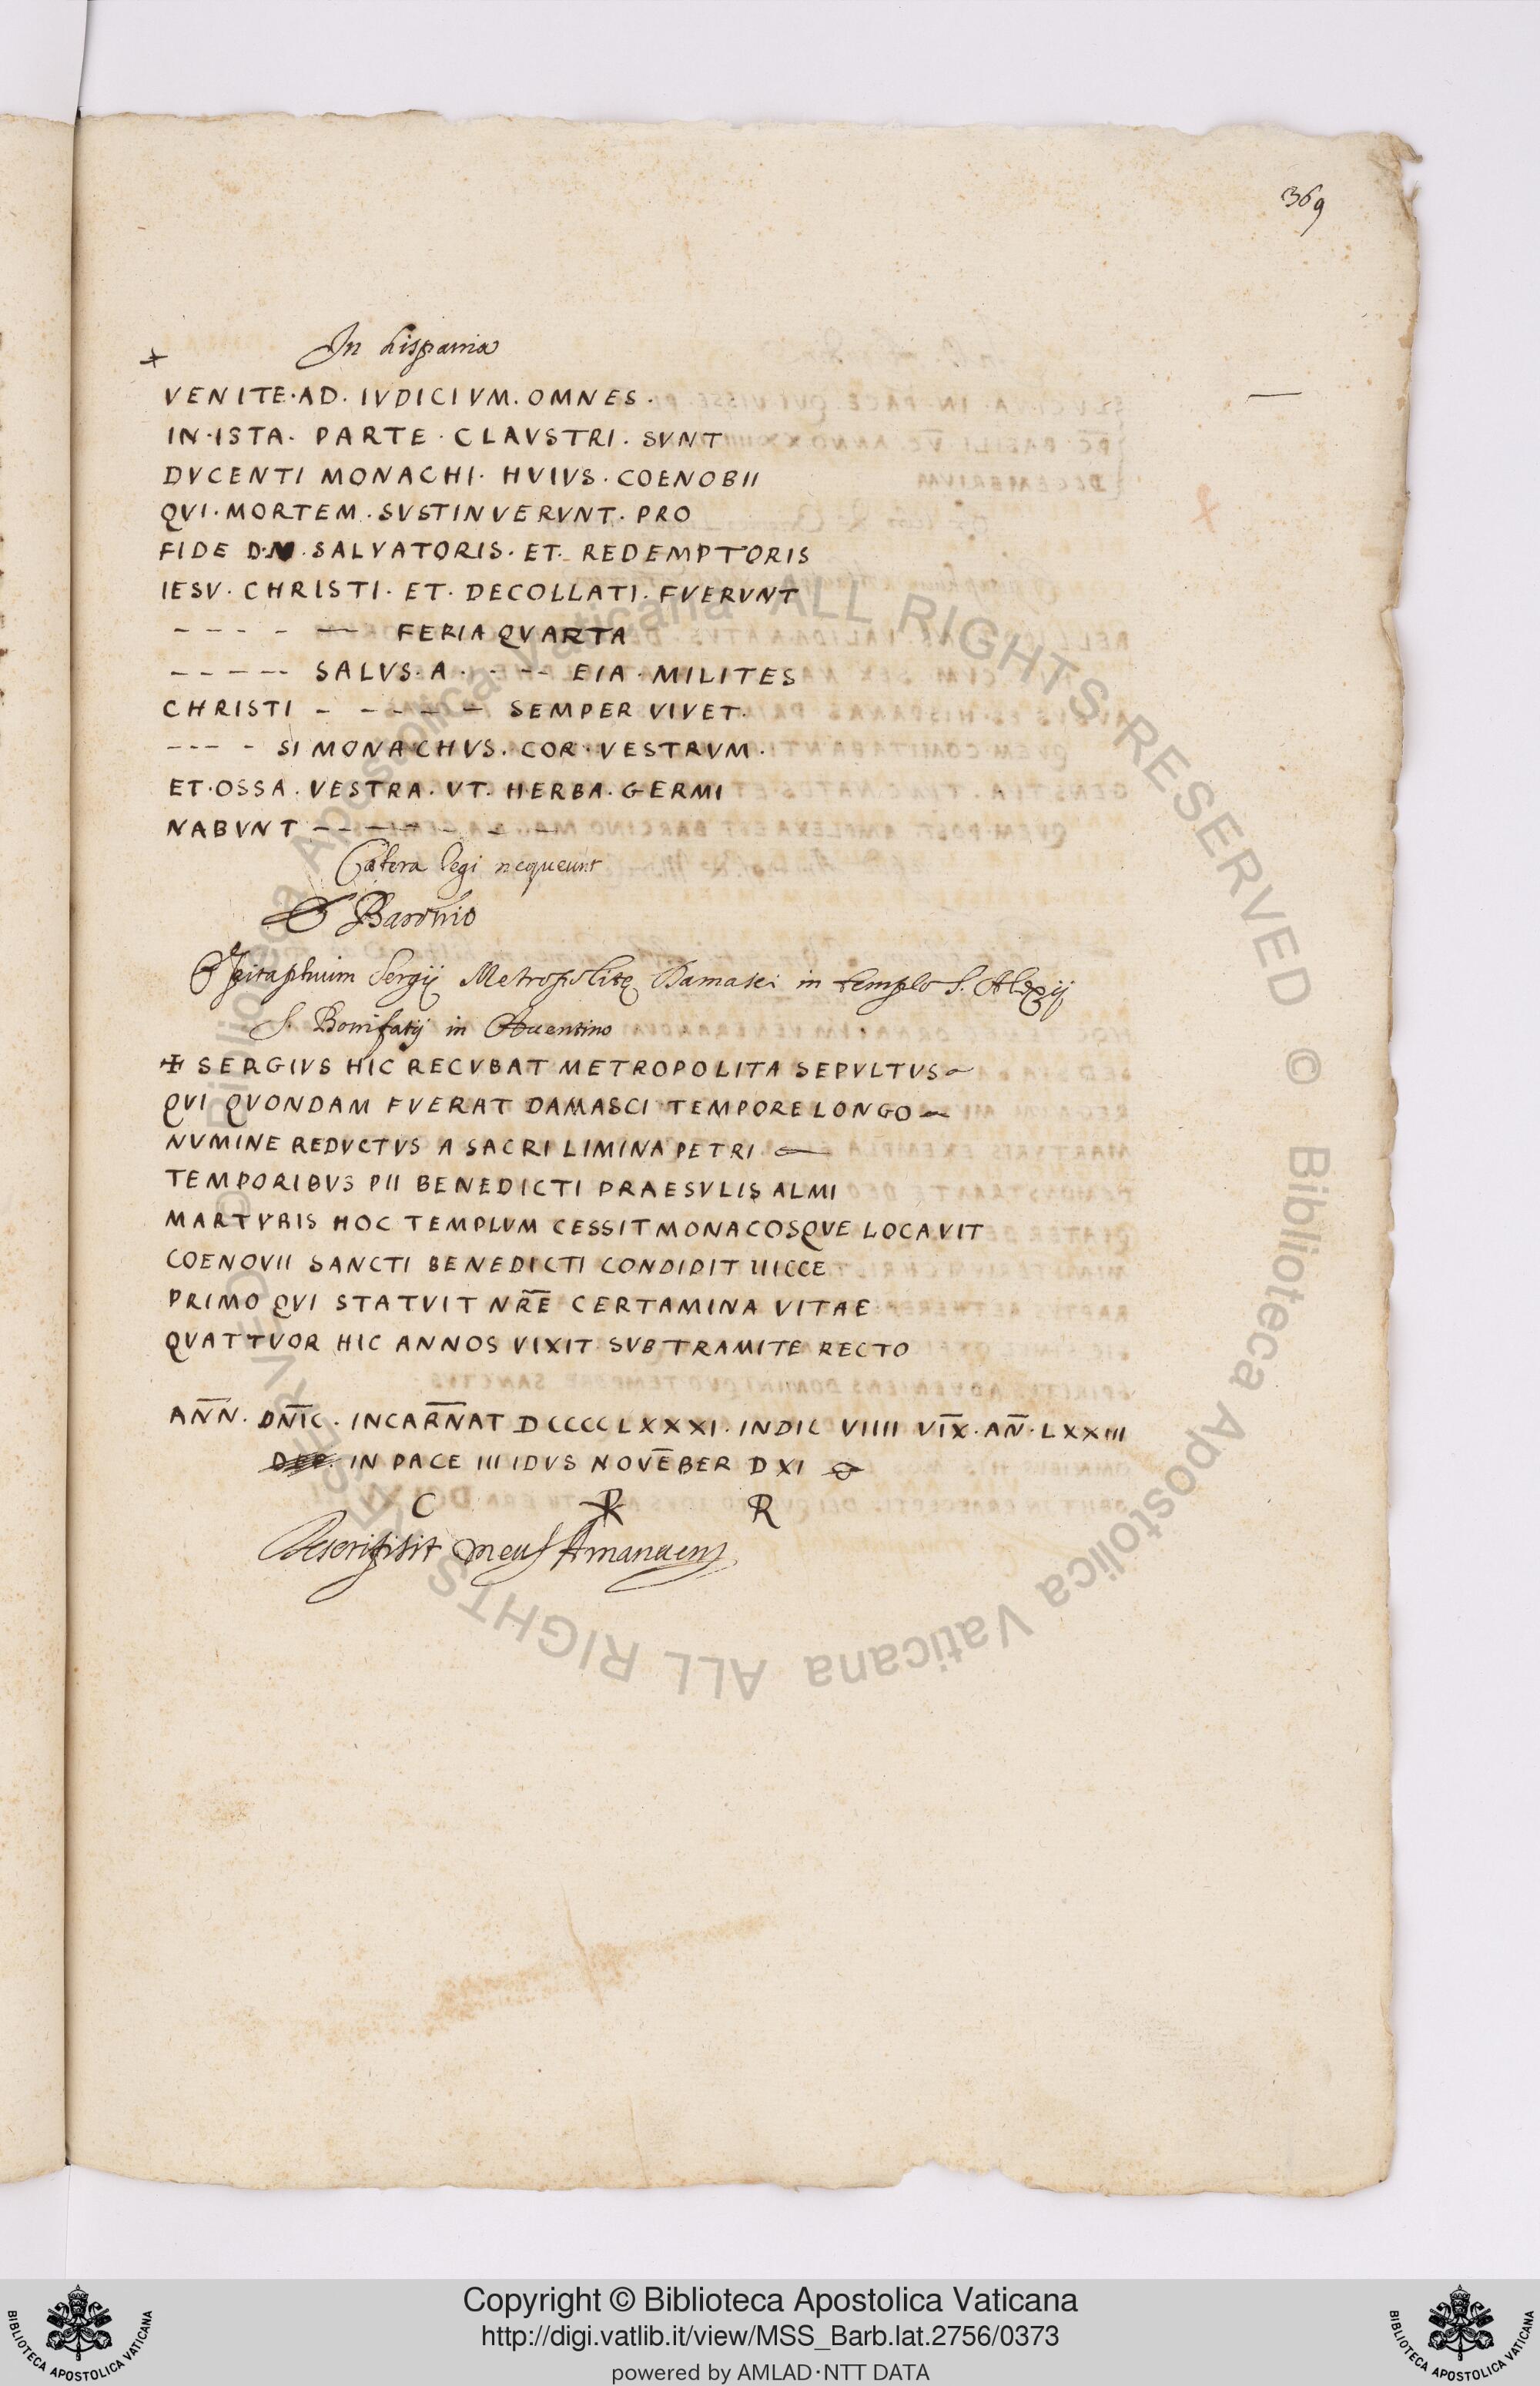 369
In hispania
+
VENITE·AD·IVDICIVM·OMNES·
IN·ISTA·PARTE·CLAVSTRI·SVNT
DVCENTI MONACHI·HVIVS·COENOBII
QVI·MORTEM·SVSTINVERVNT·PRO
FIDE D·N·SALVATORIS·ET·REDEMPTORIS
IESV·CHRISTI·ET·DECOLLATI·FVERVNT
- - - - — FERIA QVARTA
- - - - - SALVS·A·- - - EIA·MILITES
CHRISTI - - - - - SEMPER VIVET·
- - - - SI MONACHVS·COR·VESTRVM·
ET·OSSA·VESTRA·VT·HERBA·GERMI
NABVNT - - - - - - -
Cætera legi nequeunt
Baronio
Epitaphium Sergij Metropolitę Damasci in templo S. Alexij
S. Bonifatij in Auentino
✠ SERGIVS HIC RECVBAT METROPOLITA SEPVLTVS
QVI QVONDAM FVERAT DAMASCI TEMPORE LONGO
NVMINE REDVCTVS A SACRI LIMINA PETRI
TEMPORIBVS PII BENEDICTI PRAESVLIS ALMI
MARTVRIS HOC TEMPLVM CESSIT MONACOSQVE LOCAVIT
COENOVII SANCTI BENEDICTI CONDIDIT IIICCE
PRIMO QVI STATVIT NR̅E̅ CERTAMINA VITAE
QVATTVOR HIC ANNOS VIXIT SVB TRAMITE RECTO
AN̅N̅· DN̅I̅C· INCAR̅N̅AT DCCCCLXXXI· INDIC VIIII VI̅X̅· AN̅· LXXIII
DEP. IN PACE III IDVS NOVE̅BER D XI
C R R
Descripsit meus Amanuens
Copyright © Biblioteca Apostolica Vaticana
http://digi.vatlib.it/view/MSS_Barb.lat.2756/0373
powered by AMLAD·NTT DATA
BIBLIOTECA APOSTOLICA VATICANA
BIBLIOTECA APOSTOLICA VATICANA
© Biblioteca Apostolica Vaticana ALL RIGHTS RESERVED © Biblioteca Apostolica Vaticana ALL RIGHTS RESERVED